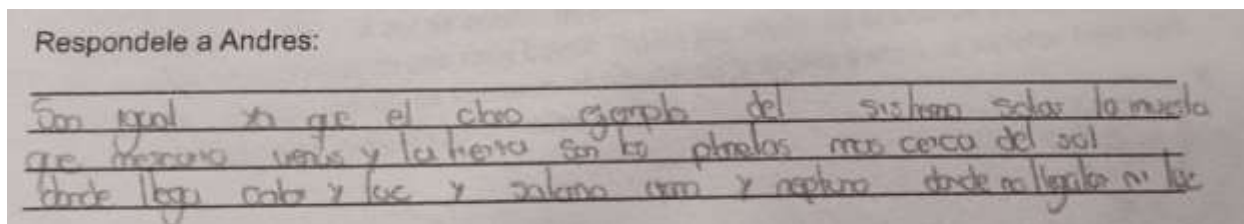 Respondele a Andres:
Son igual ya que el claro ejemplo del sistema solar lo muestra
que mercurio venus y la tierra son los planetas mas cerca del sol
donde llega calor y luz y saturno urano y neptuno donde no llega ni luz